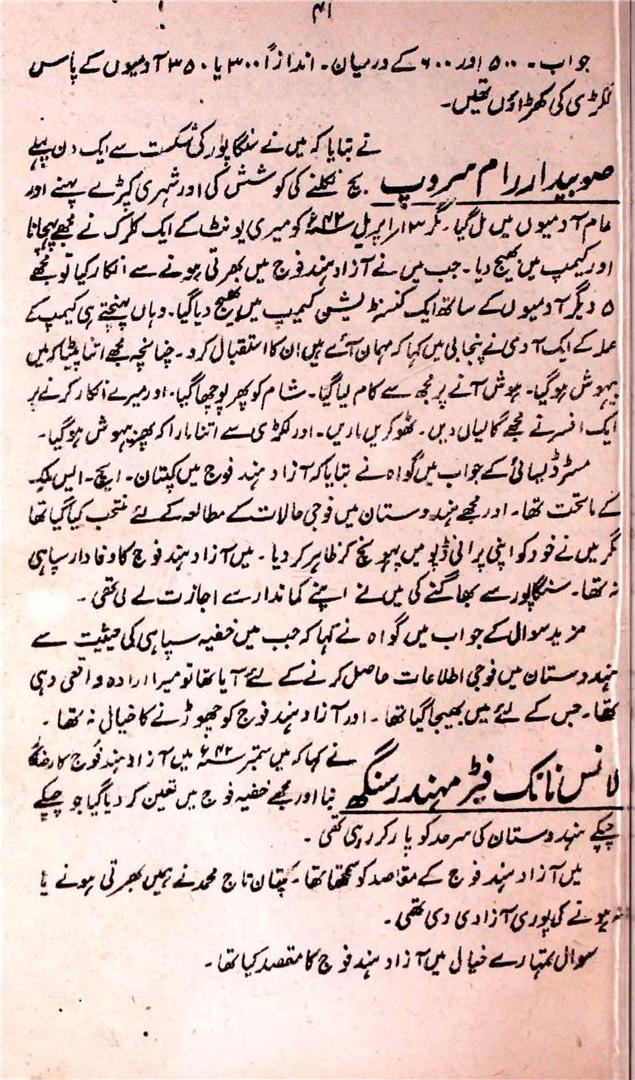 ۴۱
جواب۔ ۵۰۰ اور ۶۰۰ کے درمیان۔ اندازاً ۳۰۰ یا ۳۵۰ آدمیوں کے پاس
لکڑی کی کھڑاؤں تھیں۔
نے بتایا کہ میں نے سنگاپور کی شکست سے ایک دن پہلے
صوبیدار رام سروپ بچ نکلنے کی کوشش کی اور شہری کپڑے پہنے اور
عام آدمیوں میں مل گیا۔ مگر ۱۳ اپریل ۴۲ء کو میری یونٹ کے ایک کلرک نے مجھے پہچانا
اور کیمپ میں بھیج دیا۔ جب میں نے آزاد ہند فوج میں بھرتی ہونے سے انکار کیا تو مجھے
۵ دیگر آدمیوں کے ساتھ ایک کنسنٹریشن کیمپ میں بھیج دیا گیا۔ وہاں پہنچتے ہی کیمپ کے
عملہ کے ایک آدمی نے پنجابی میں کہا کہ مہمان آئے ہیں ان کا استقبال کرو۔ چنانچہ مجھے اتنا پیٹا کہ میں
بیہوش ہو گیا۔ ہوش آنے پر مجھ سے کام لیا گیا۔ شام کو پھر پوچھا گیا۔ اور میرے انکار کرنے پر
ایک افسر نے مجھے گالیاں دیں۔ ٹھوکریں ماریں۔ اور لکڑی سے اتنا مارا کہ پھر بیہوش ہو گیا۔
مسٹر ڈیسائی کے جواب میں گواہ نے بتایا کہ آزاد ہند فوج میں کپتان۔ ایچ۔ ایس
کے ماتحت تھا۔ اور مجھے ہندوستان میں فوجی حالات کے مطالعہ کے لئے منتخب کیا گیا تھا
مگر میں نے خود کو اپنی پرانی ڈپو میں پہونچ کر ظاہر کر دیا۔ میں آزاد ہند فوج کا وفادار سپاہی
نہ تھا۔ سنگاپور سے بھاگنے کی میں نے اپنے کماندار سے اجازت لے لی تھی۔
مزید سوال کے جواب میں گواہ نے کہا کہ جب میں خفیہ سپاہی کی حیثیت سے
ہندوستان میں فوجی اطلاعات حاصل کرنے کے لئے آیا تھا تو میرا ارادہ واقعی وہی
تھا۔ جس کے لئے میں بھیجا گیا تھا۔ اور آزاد ہند فوج کو چھوڑنے کا خیال نہ تھا۔
نے کہا کہ میں ستمبر ۴۲ء میں آزاد ہند فوج کا رضاکار
لانس نائک فیٹر مہندر سنگھ بنا اور مجھے خفیہ فوج میں تعین کر دیا گیا جو چپکے
چپکے ہندوستان کی سرحد کو پار کر رہی تھی۔
میں آزاد ہند فوج کے مقاصد کو سمجھتا تھا۔ کپتان تاج محمد نے ہمیں بھرتی ہونے یا
نہ ہونے کی پوری آزادی دی تھی۔
سوال تمہارے خیال میں آزاد ہند فوج کا مقصد کیا تھا۔